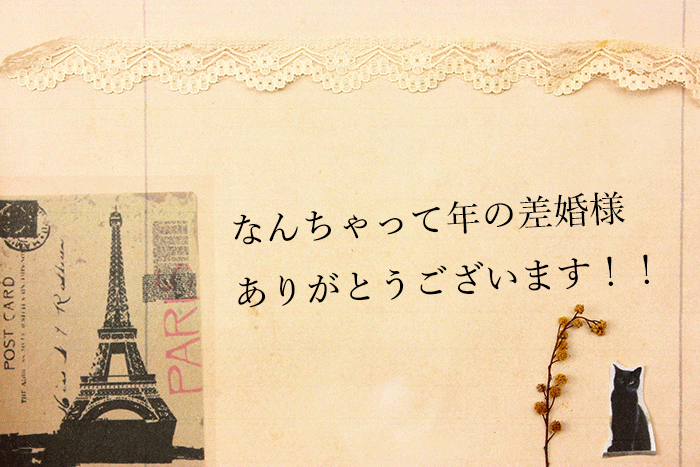 なんちゃって年の差婚様
ありがとうございます！！
POST CARD
PARIS